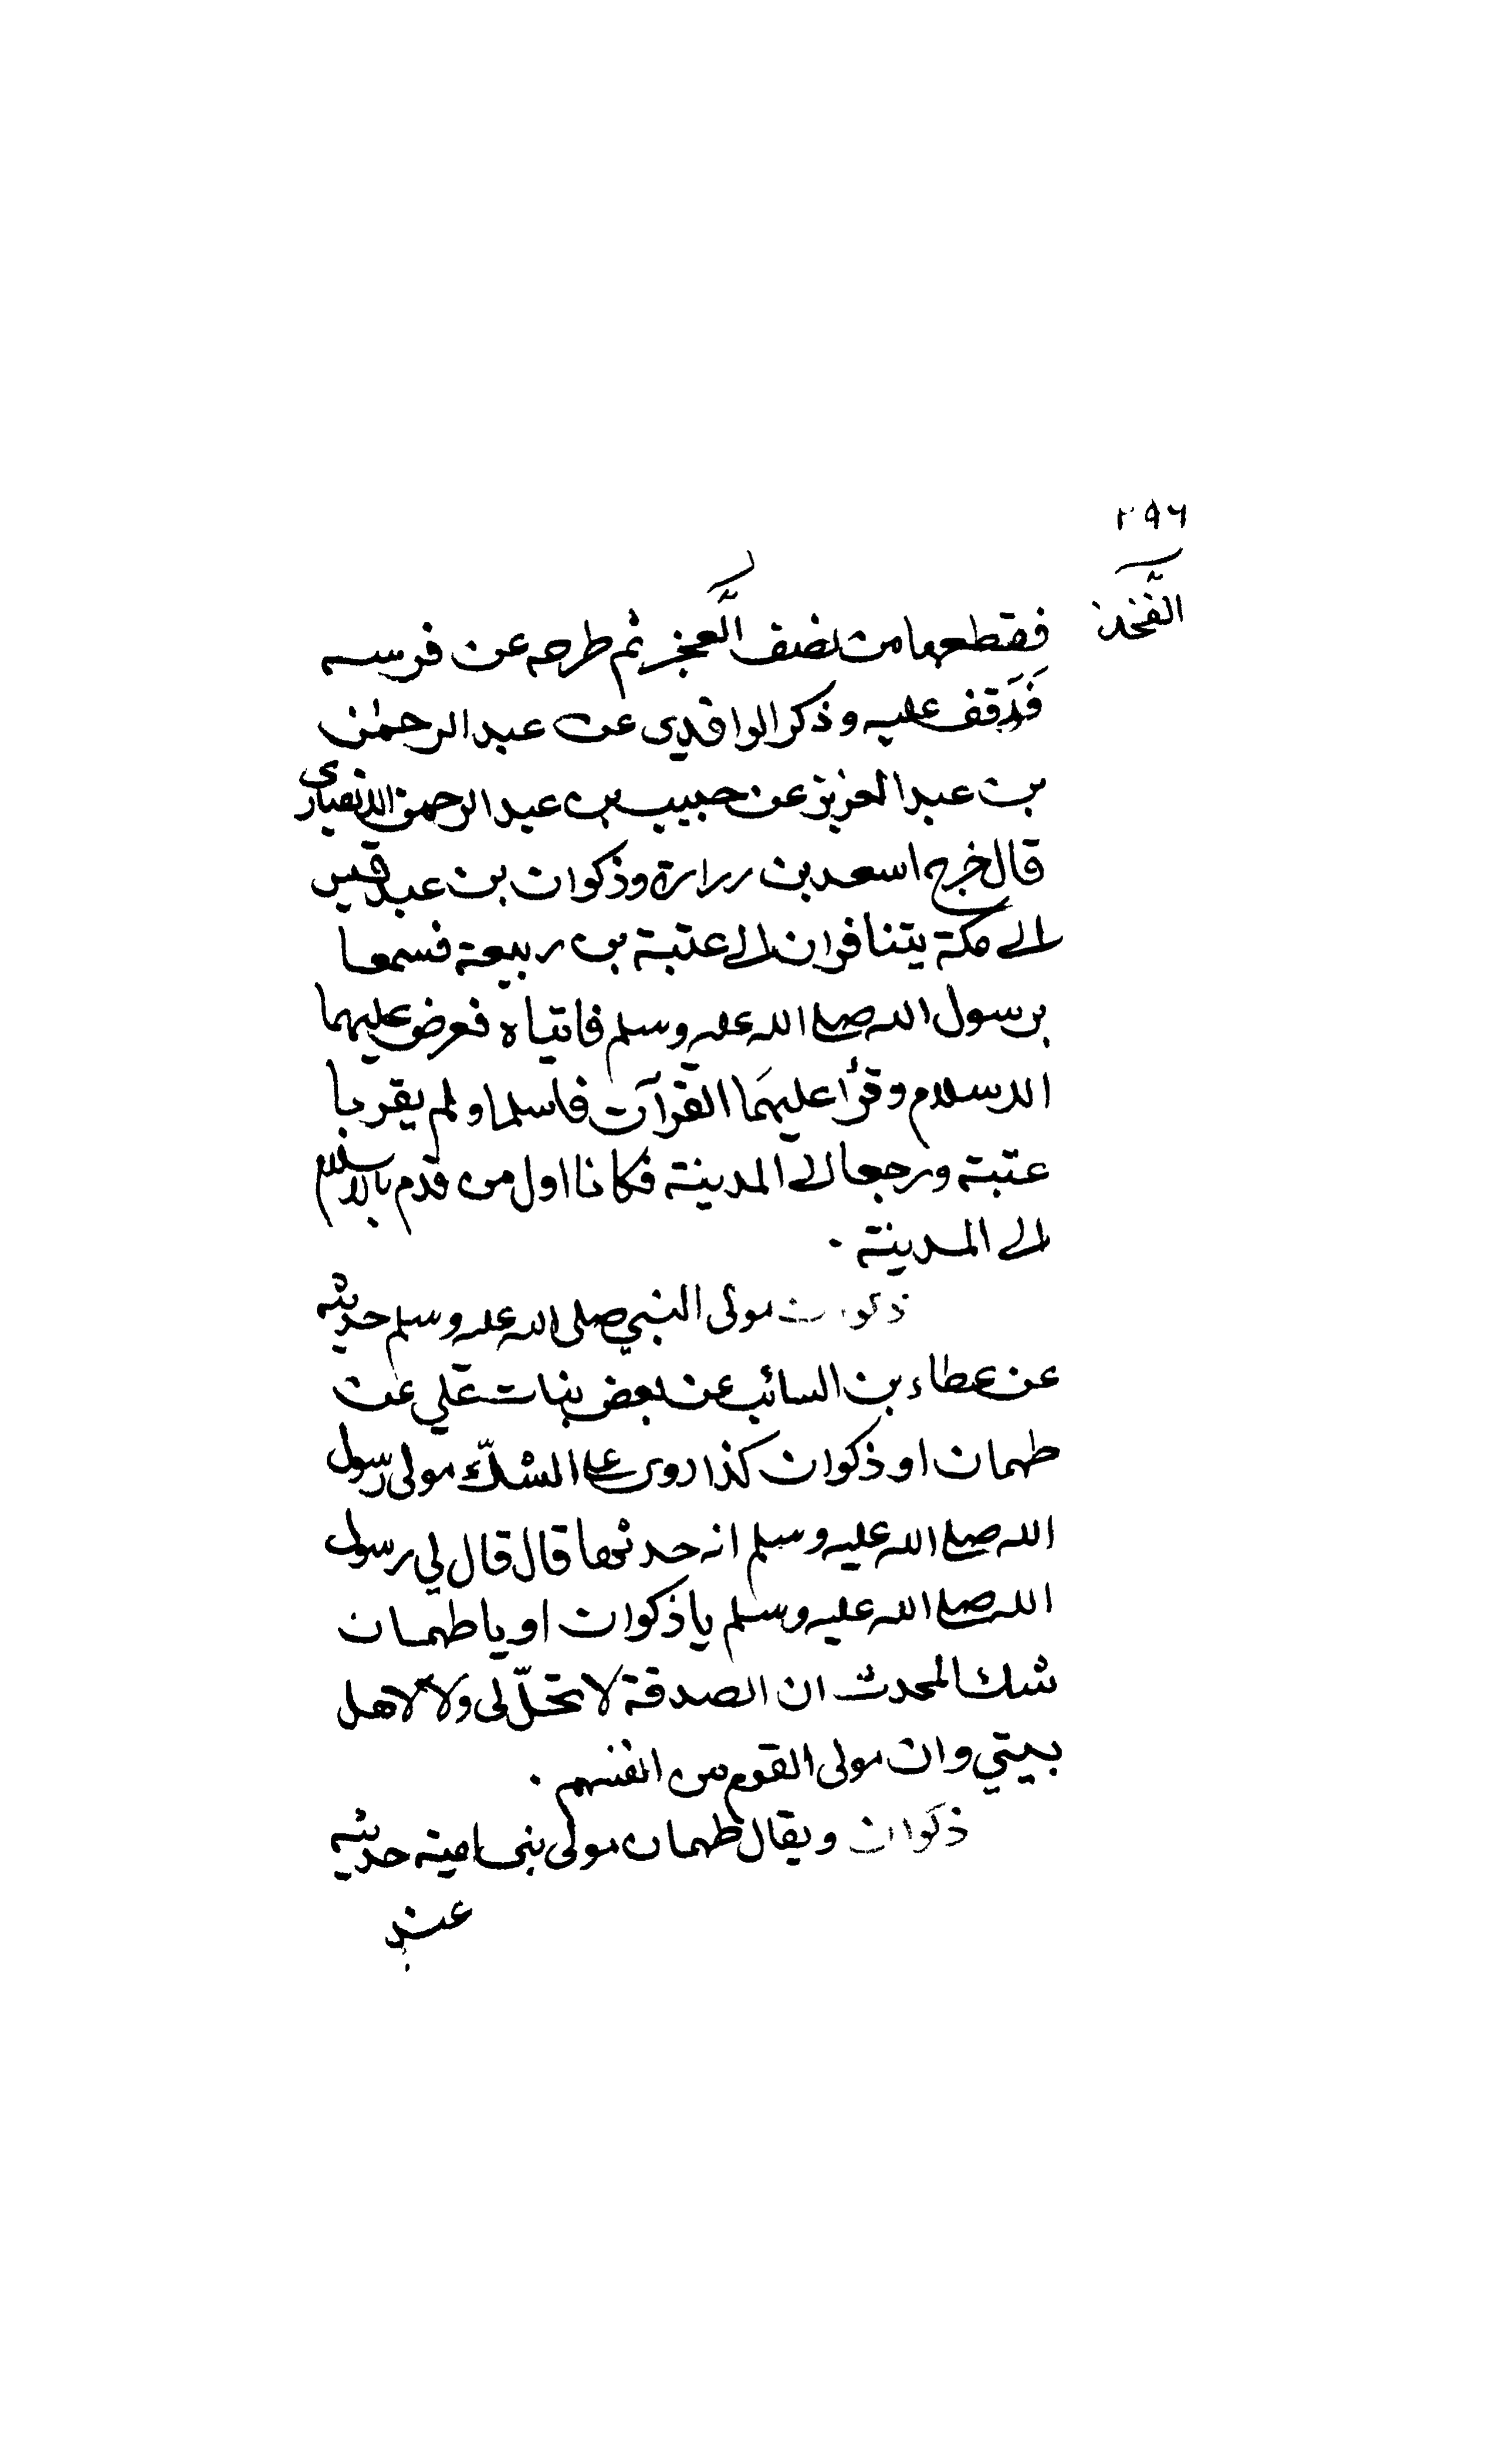 ٢٩٦
الفخذ
فقطعها من نصف العجز ثم طرحه عن فرسه
فذقف عليه وذكر الواقدي عن عبد الرحمن
بن عبد العزيز عن حبيب بن عبد الرحمن الانصاري
قال خرج اسعد بن زرارة وذكوان بن عبد قيس
الى مكة يتنافران الى عتبة بن ربيعة فسمعا
برسول الله صلى الله عليه وسلم فاتياه فعرض عليهما
الاسلام وقرأ عليهما القرآن فاسلما ولم يقربا
عتبة ورجعا الى المدينة فكانا اول من قدم بالاسلام
الى المدينة .
ذكوان مولى النبي صلى الله عليه وسلم حديثه
عن عطاء بن السائب عن بعض بنات علي عن
طهمان او ذكوان كذا روى على الشكّ مولى رسول
الله صلى الله عليه وسلم انه حدثها قال قال لي رسول
الله صلى الله عليه وسلم يا ذكوان او يا طهمان
شك المحدث ان الصدقة لا تحلّ لي ولا لاهل
بيتي وان مولى القوم من انفسهم .
ذكوان ويقال طهمان مولى بني امية حديثه
عند